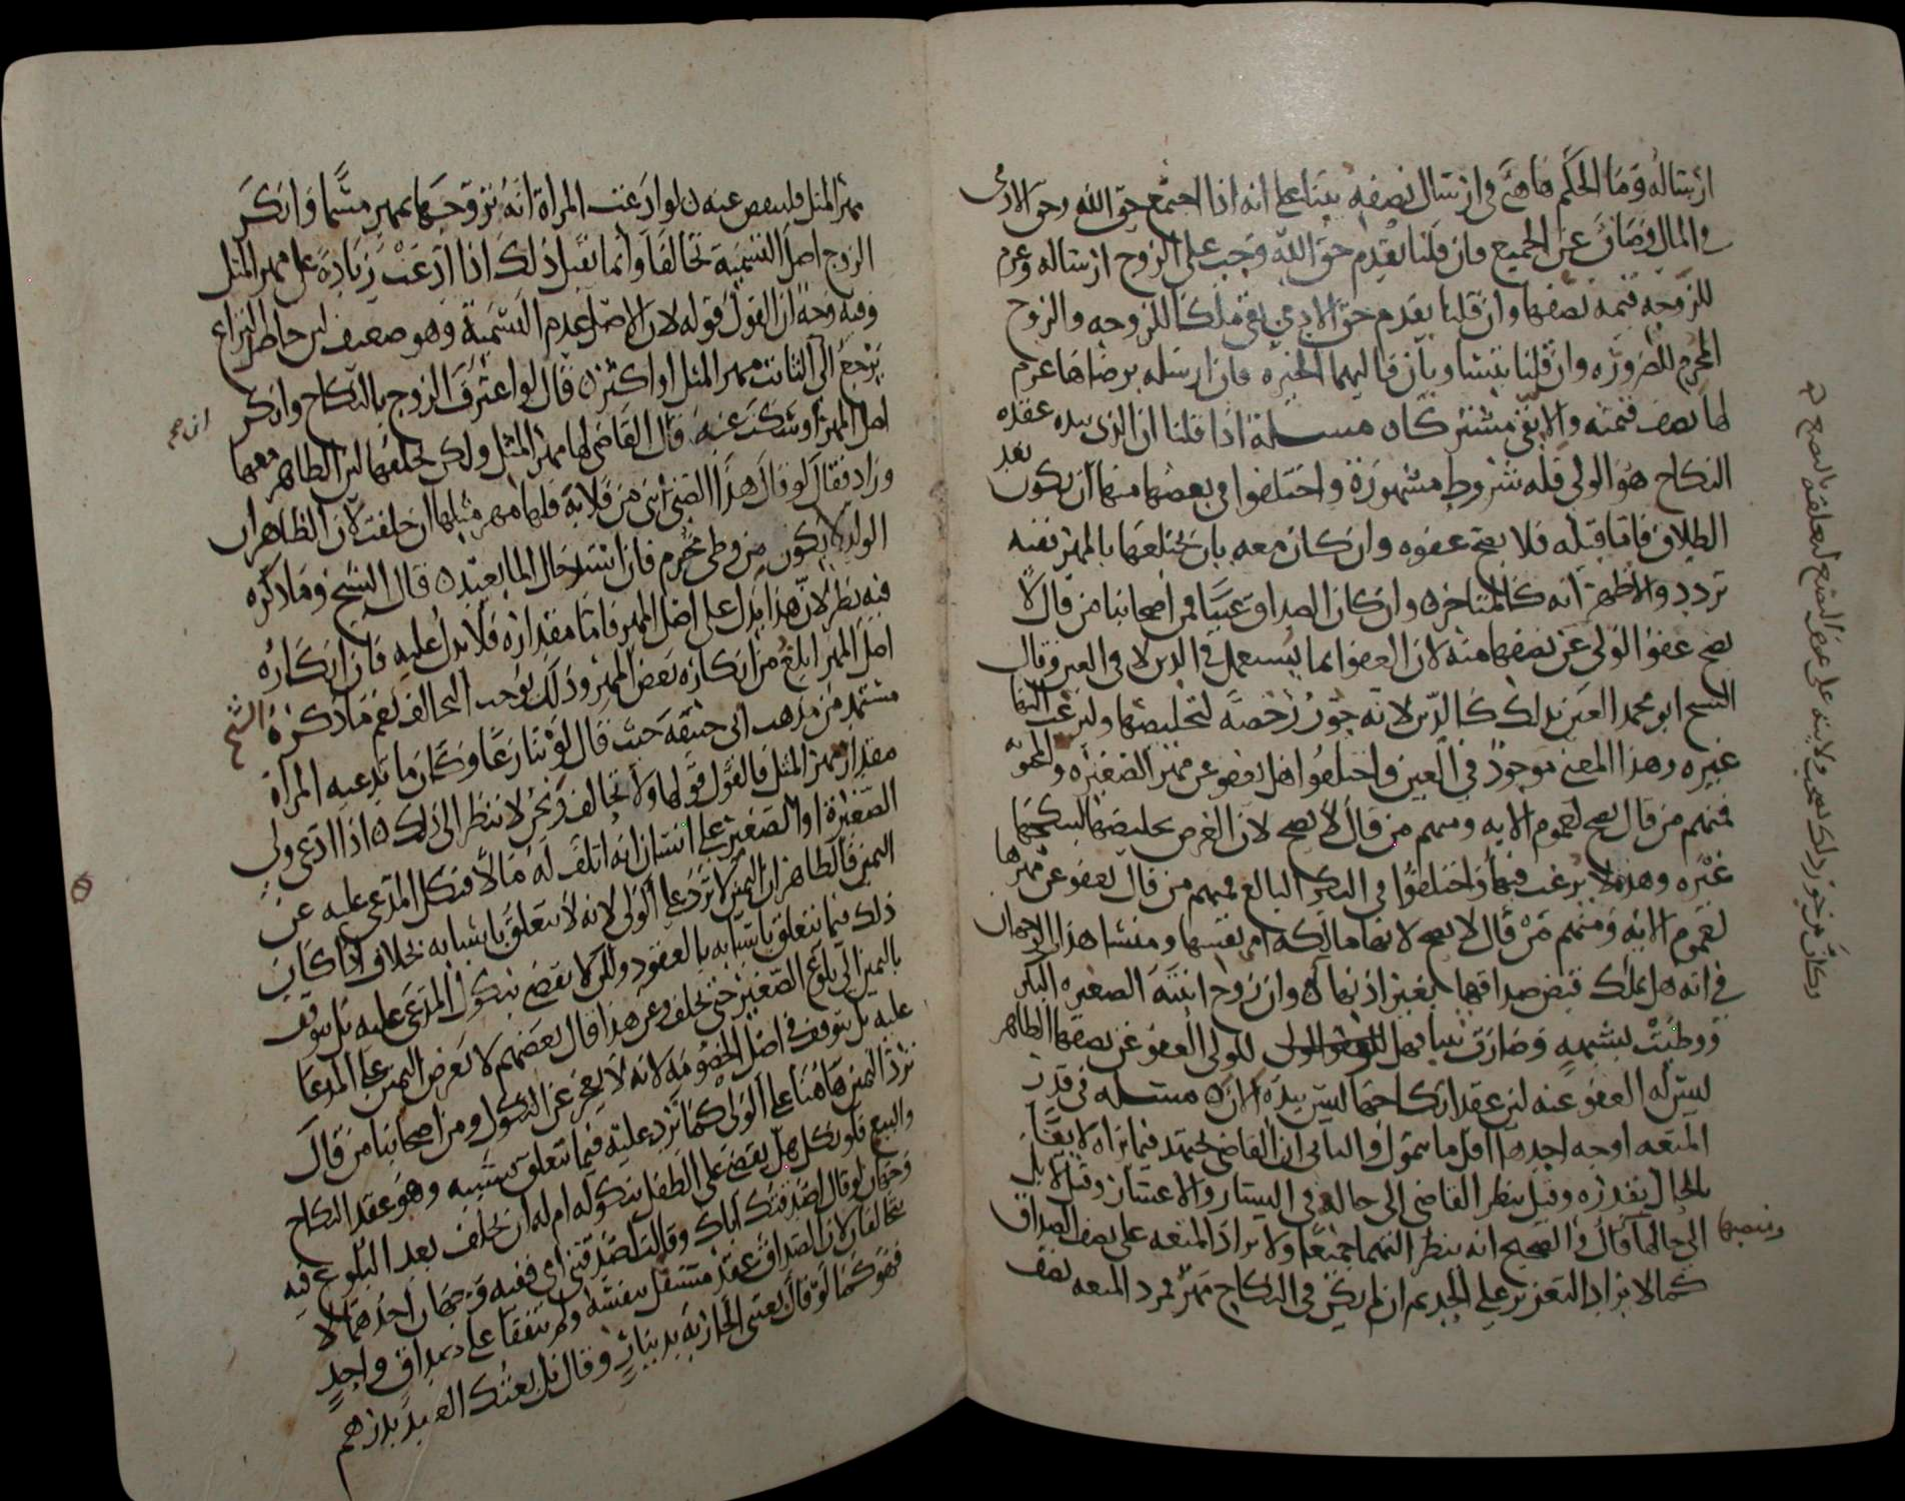 ارساله وما الحكم هاهنا في ارسال نصفه بينا على انه اذا اجتمع حق الله وحق الادمى
في المال وضاق عن الجميع فان قلنا يقدم حق الله وجب على الزوج ارساله وغرم
للزوجه قيمه نصفها وان قلنا يقدم حق الادمي بقي ملكا للزوجه والزوج
المحرم للضروره وان قلنا يتساويان فاليهما الخيره فان ارسله برضاها غرم
لها نصف قيمته والا بقي مشتركا ه مسلة اذا قلنا ان الذى بيده عقده
النكاح هو الولي فله شروط مشهورة واختلفوا في بعضها منها ان يكون بعد
الطلاق فاما قبله فلا يصح عفوه وان كان معه بان يختلعها بالمهر ففيه
تردد والاظهر انه كالمتاخر ه وان كان الصداق عينا فمن اصحابنا من قال لا
يصح عفو الولى عن نصفها منه لان العفو انما يستعمل في الدين لا في العين وقال
الشيخ ابو محمد العين في ذلك كالدين لانه جوز رخصة لتخليصها وليرغب فيها
غيره وهذا المعنى موجود في العين واختلفوا هل يعفو عن مهر الصغيره
فمنهم من قال يصح لعموم الايه ومنهم من قال لا يصح لان الغرض تخليصها لينكحها
غيره وهذه لا يرغب فيها واختلفوا في البكر البالغ فمنهم من قال يعفو عن مهرها
لعموم الايه ومنهم من قال لا يصح لانها مالكه امر نفسها ومنشا هذا الاحتمال
في انه هل يملك قبض صداقها بغير اذنها ه وان زوج ابنته الصغيره البكر
ووطئت بشبهه وصارت ثيبا فهل للولى العفو عن نصفها الظاهر
ليس له العفو عنه لان عقد انكاحها ليس بيده الان ه مسله في قدر
المتعه اوجه احدها اقل ما يتمول والثاني ان القاضي يجتهد فيما يراه لايقا
بالحال يقدره وقيل ينظر القاضى الى حاله في اليسار والاعسار وقيل لا بل
الى حالها قال والصحيح انه ينظر اليهما جميعا ولا يزاد المتعه على نصف الصداق
كما لا يزاد التعزير على الحد ثم ان لم يكن في النكاح مهر فرد المتعه نصف
مهر المثل فلينقص عنه ه لو ادعت المراة انه تزوجها بمهر مسما وانكر
الزوج اصل التسمية تحالفا وانما يقبل ذلك اذا ادعت زيادة على مهر المثل
وفيه وجه ان القول قوله لان الاصل عدم التسمية وهو ضعيف لان حاصل النزاع
يرجع الى الثابت مهر المثل او اكثر ه قال لو اعترف الزوج بالنكاح وانكر
اصل المهر او سكت عنه قال القاضى لها مهر المثل ولكن يحلفها لان الظاهر معها
وزاد فقال لو قال هذا الصبى ابنى من فلانة فلها مهر مثلها ان حلفت لان الظاهر ان
الولد لا يكون من وطى محرم فان استدخال الما بعيد ه قال الشيخ وما ذكره
فيه نظر لان هذا يدل على اصل المهر فاما مقداره فلا يدل عليه فان انكاره
اصل المهر ابلغ من انكاره بعض المهر وذلك يوجب التحالف نعم ما ذكره الشيخ
مستمد من مذهب ابى حنيفة حيث قال لو تنازعا وكان ما تدعيه المراة
مقدار مهر المثل فالقول قولها ولا تحالف ونحن لا ننظر الى ذلك ه اذا ادعى ولي
الصغيرة او الصغير على انسان انه اتلف له مالا فنكل المدعى عليه عن
اليمين فالظاهر ان اليمين لا ترد على الولى لانه لا يتعلق بانشايه بخلاف اذا كان
ذلك فيما يتعلق بانشايه بالعقود ولكن لا يقضى بنكول المدعى عليه بل يتوقف
باليمين الى بلوغ الصغير حتى يحلف وعن هذا قال بعضهم لا تعرض اليمين على المدعا
عليه بل يتوقف في اصل الخصومه لانه لا يعجز عن النكول ومن اصحابنا من قال
ترد اليمين هاهنا على الولى كما ترد عليه فيما يتعلق بنفسه وهو عقد النكاح
والبيع فلو نكل هل يقضى على الطفل بنكوله ام له ان يحلف بعد البلوغ فيه
وجهان لو قال اصدقتك اباك وقالت اصدقتنى امي ففيه وجهان احدهما لا
يتحالفان لان الصداق عقد مستقل بنفسه ولم يتفقا على صداق واحد
فهو كما لو قال بعتنى الجارية بدينار وقال بل بعتك العبد بدرهم